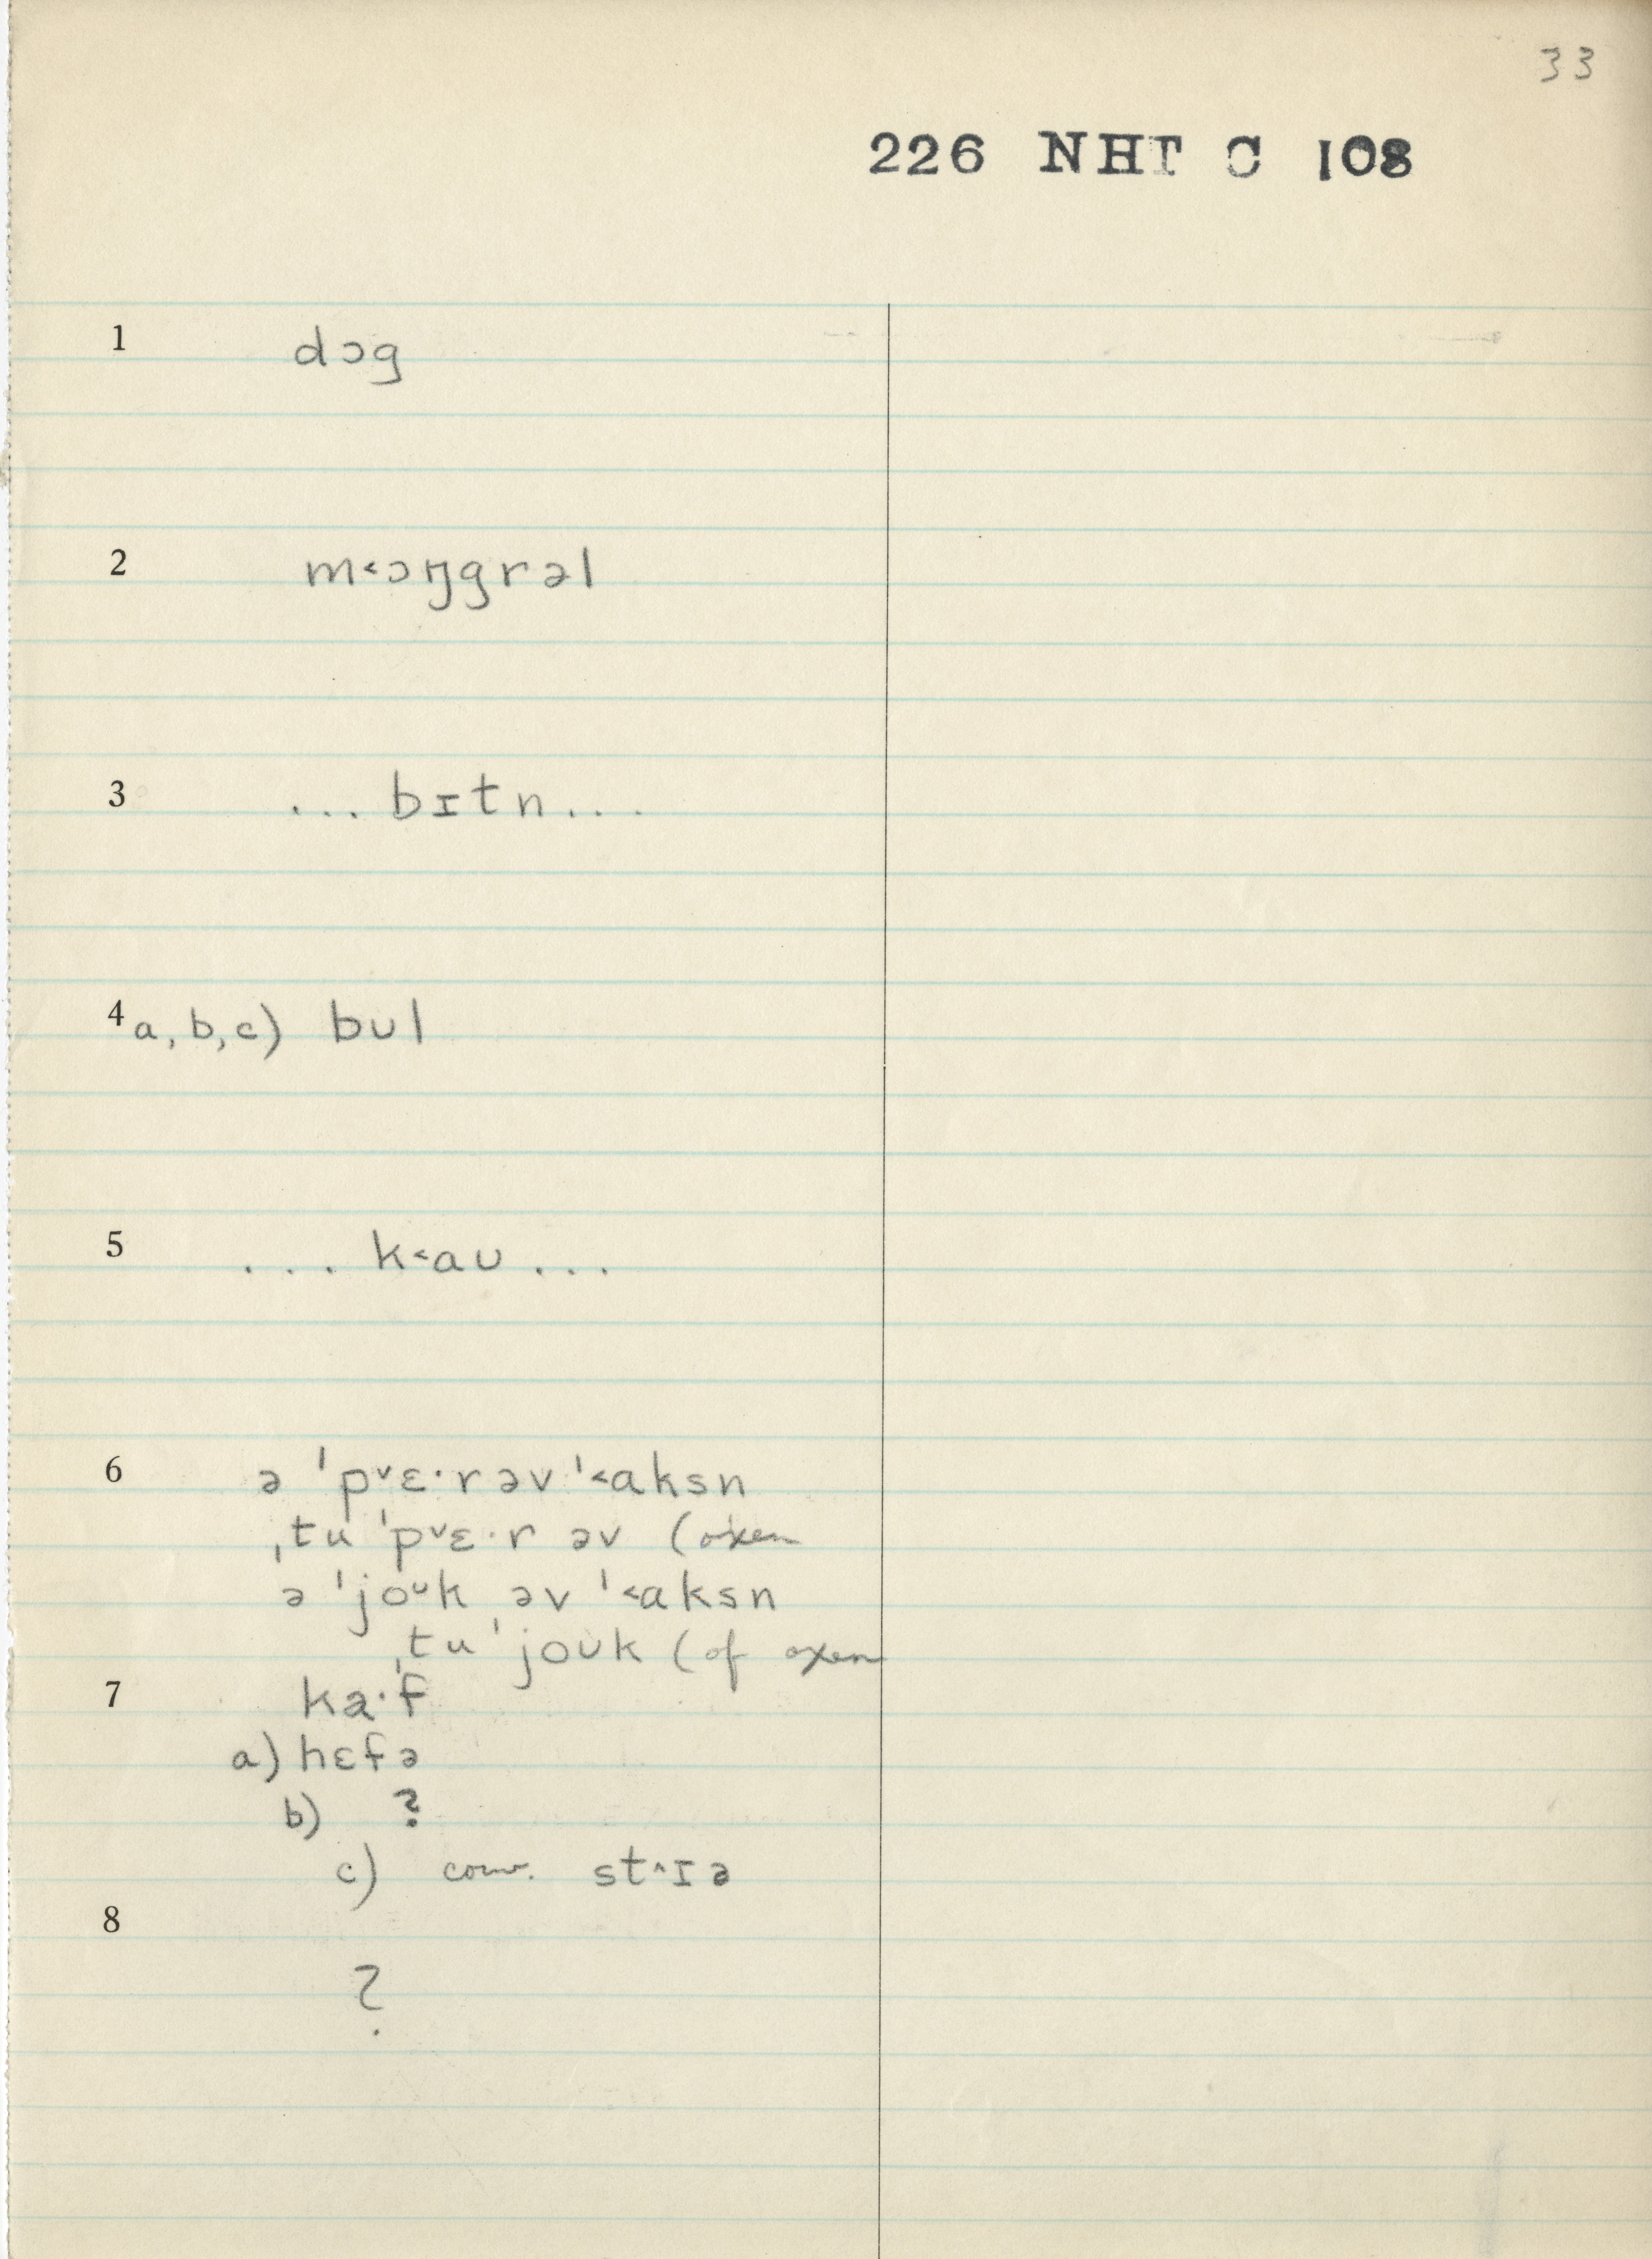 33
226 NHT C 108
1 dɔg
2 m˂ɔŋgrəl
3 ... bɪtn...
4 a, b, c) bʊl
5 ... k˂aʊ...
6 ə ˈp˅ɛ·rəv ˈ˂aksn
ˌtu ˈp˅ɛ·r əv (oxen
ə ˈjoᶷk əv ˈ˂aksn
ˌtu ˈjoʊk (of oxen
7 ka·f
a) hɛfə
b) ?
c) conv. st˄ɪə
8
?